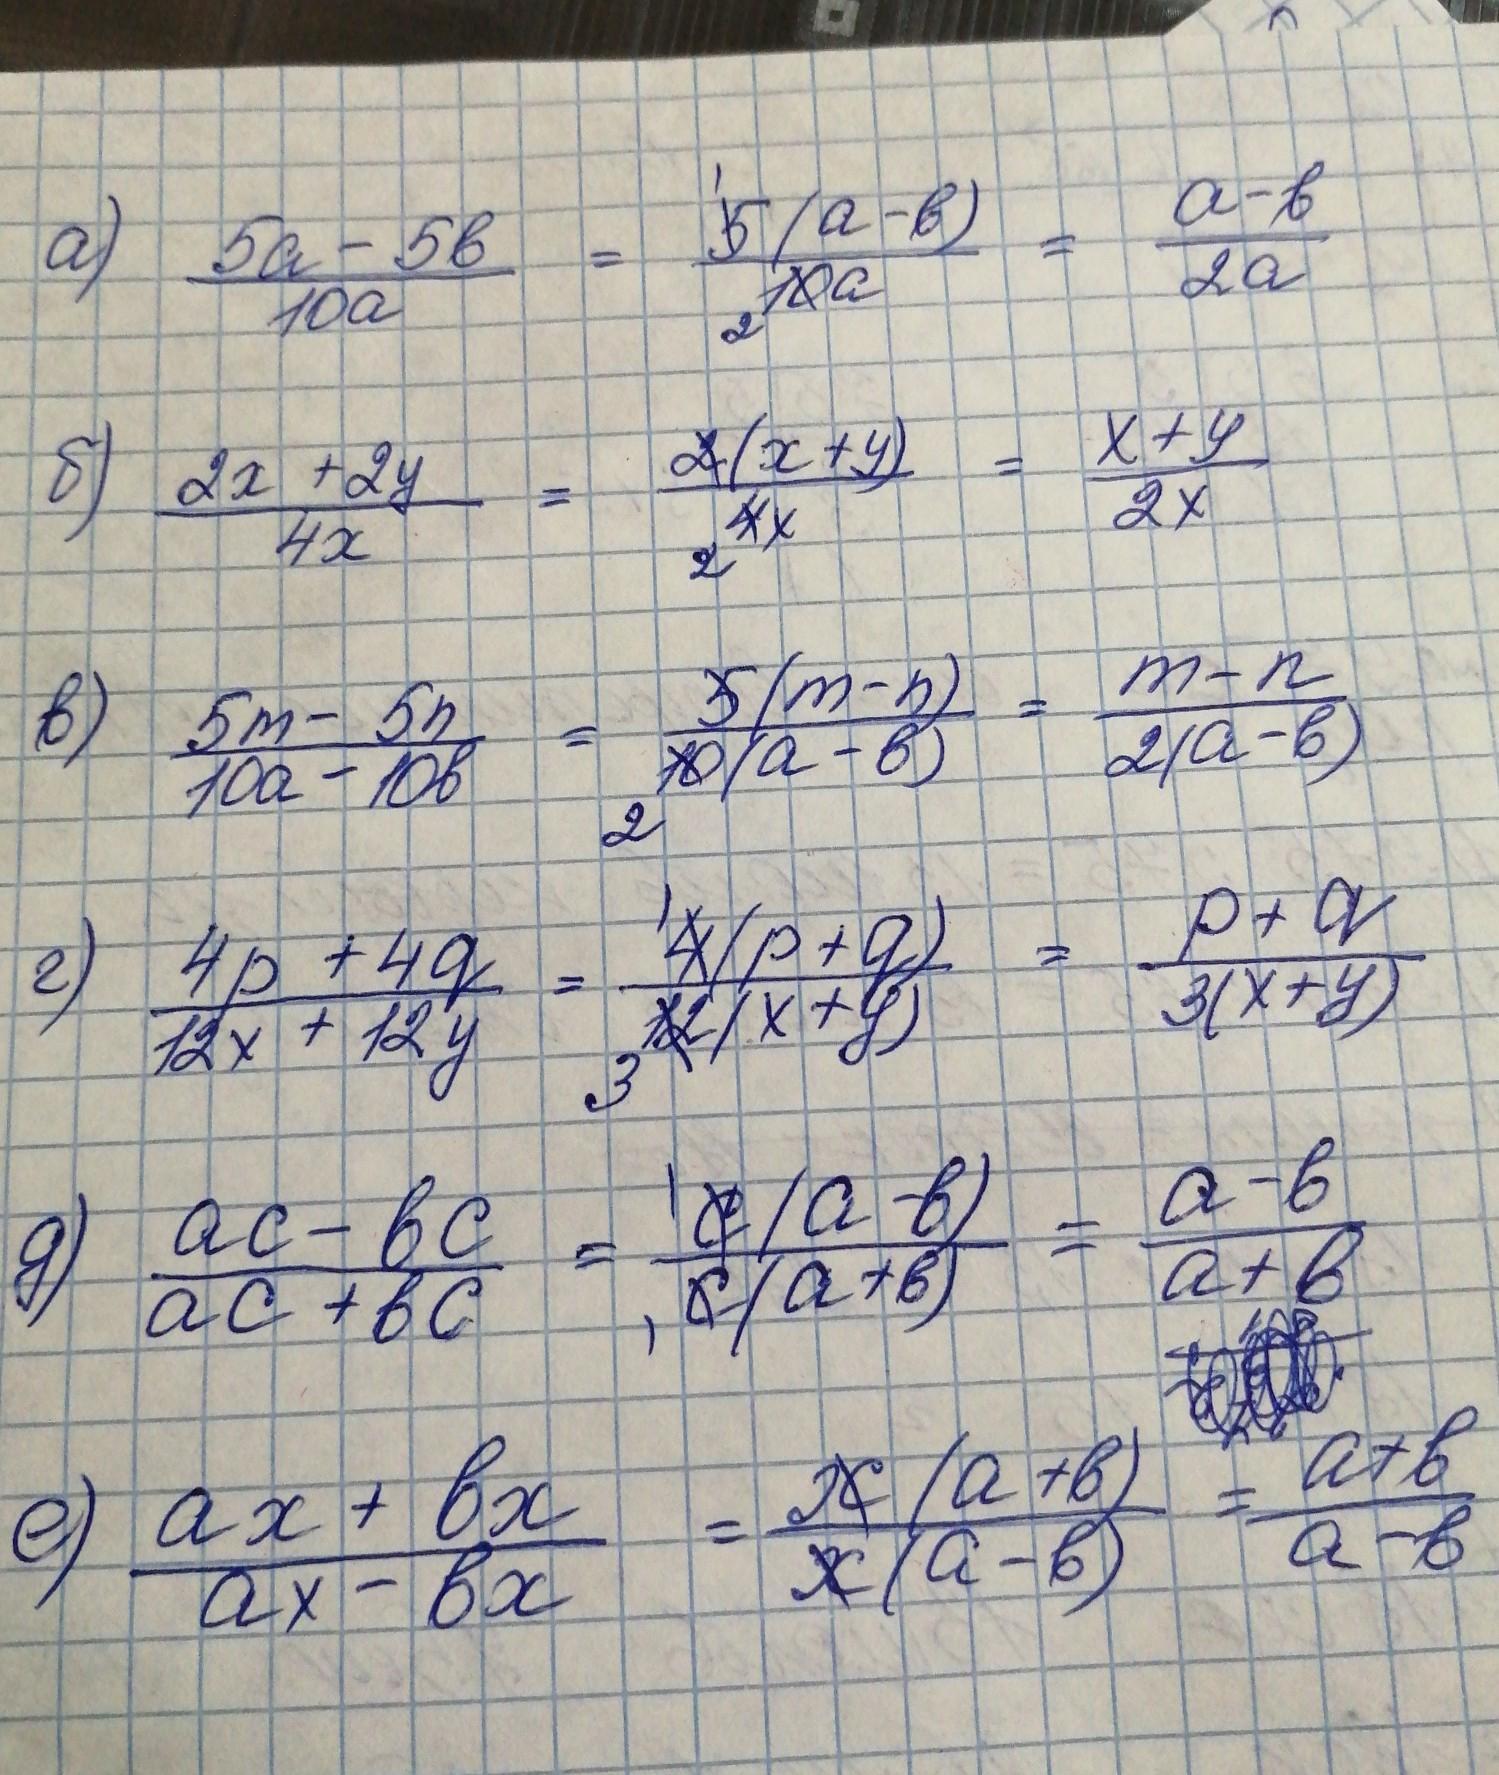 а) (5a - 5b)/(10a) = (5(a - b))/(10a) = (a - b)/(2a)
б) (2x + 2y)/(4x) = (2(x + y))/(4x) = (x + y)/(2x)
в) (5m - 5n)/(10a - 10b) = (5(m - n))/(10(a - b)) = (m - n)/(2(a - b))
г) (4p + 4q)/(12x + 12y) = (4(p + q))/(12(x + y)) = (p + q)/(3(x + y))
д) (ac - bc)/(ac + bc) = (c(a - b))/(c(a + b)) = (a - b)/(a + b)
е) (ax + bx)/(ax - bx) = (x(a + b))/(x(a - b)) = (a + b)/(a - b)